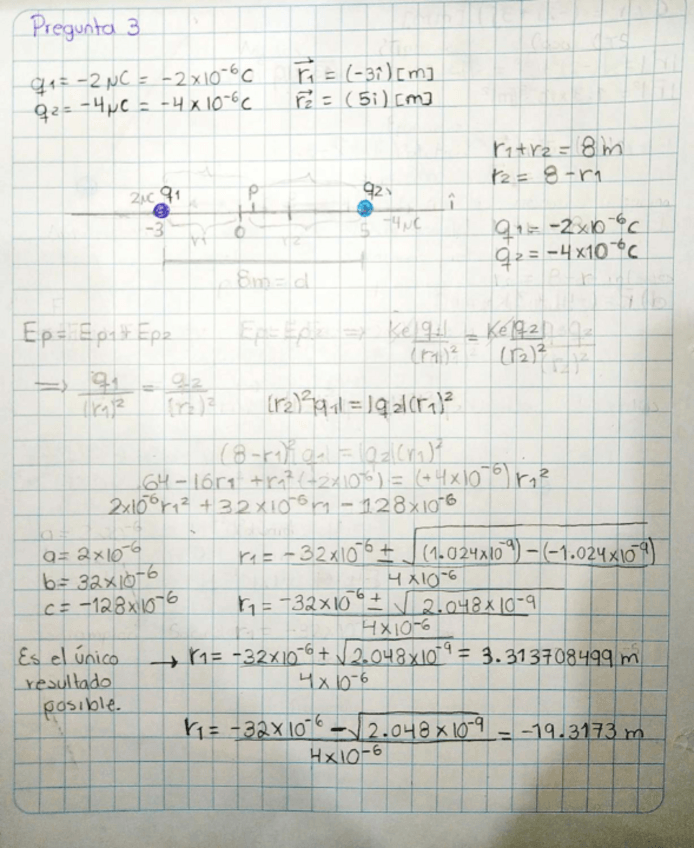 Pregunta 3
q1 = -2 µC = -2x10⁻⁶C    r⃗1 = (-3î) [m]
q2 = -4µC = -4 x 10⁻⁶C    r⃗2 = (5î) [m]
r1 + r2 = 8m
r2 = 8 - r1
2µC q1    P    q2
-3    r1    0    r2    5    -4µC    î
8m = d
q1 = -2x10⁻⁶C
q2 = -4x10⁻⁶C
Ep = Ep1 + Ep2    ⇒ Ke|q1|/(r1)² = Ke|q2|/(r2)²
⇒ q1/(r1)² = q2/(r2)²    (r2)²|q1| = |q2|(r1)²
(8-r1)²|q1| = |q2|(r1)²
64 - 16r1 + r1² (+2x10⁻⁶) = (+4x10⁻⁶) r1²
2x10⁻⁶r1² + 32x10⁻⁶r1 - 128x10⁻⁶
a = 2x10⁻⁶    r1 = -32x10⁻⁶ ± √((1.024x10⁻⁹) - (-1.024x10⁻⁹)) / 4x10⁻⁶
b = 32x10⁻⁶
c = -128x10⁻⁶    r1 = -32x10⁻⁶ ± √(2.048x10⁻⁹) / 4x10⁻⁶
Es el único resultado posible. → r1 = -32x10⁻⁶ + √(2.048x10⁻⁹) / 4x10⁻⁶ = 3.313708499 m
r1 = -32x10⁻⁶ - √(2.048x10⁻⁹) / 4x10⁻⁶ = -19.3173 m